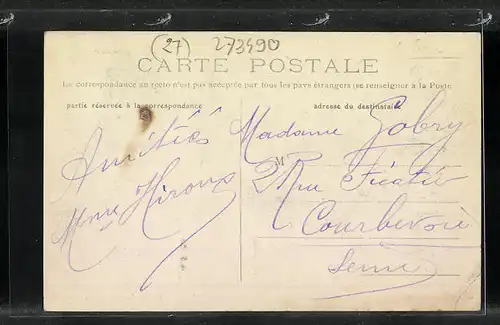 (27) 273490
CARTE POSTALE
La correspondance au recto n'est pas acceptée par tous les pays étrangers (se renseigner à la Poste
partie réservée à la correspondance
adresse du destinataire
Amitiés
Mme
Madame Gobry
M
2 Rue
Courbevoie
Seine